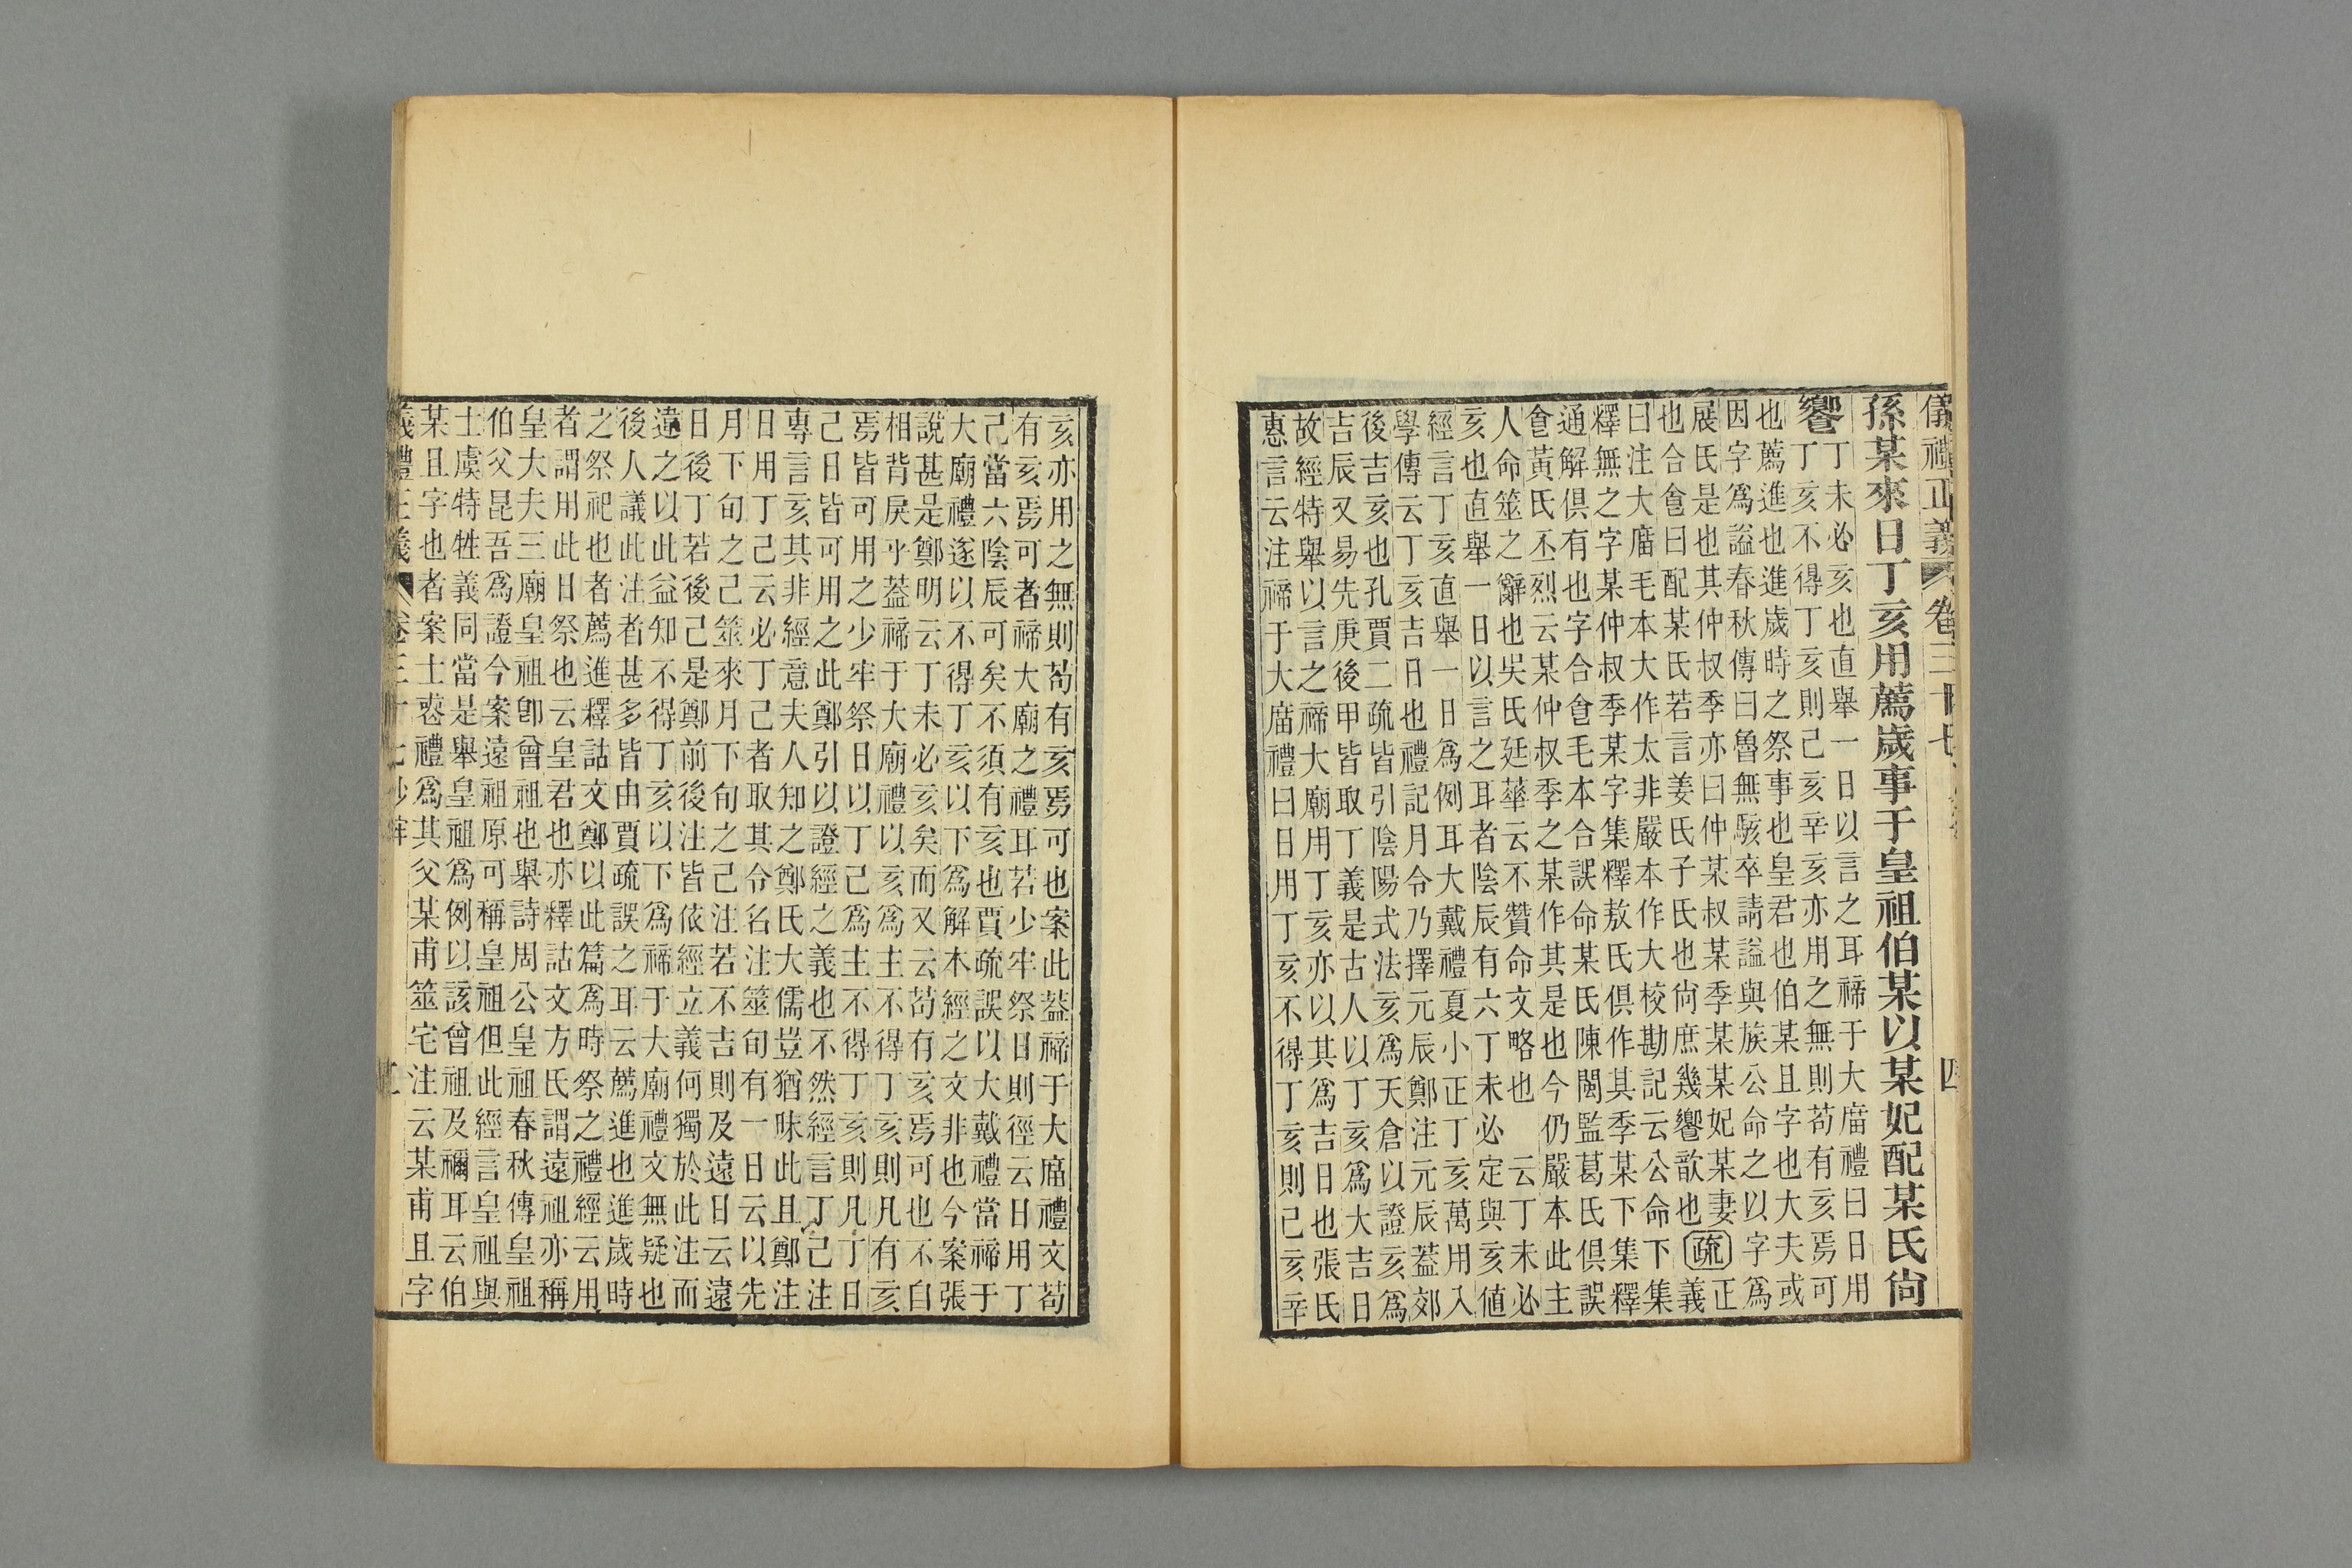 儀禮正義 卷三十七 四
孫某來日丁亥用薦歲事于皇祖伯某以某妃配某氏尙
饗
丁未必亥也直舉一日以言之耳禘于大庿禮曰日用
丁亥不得丁亥則己亥辛亥亦用之無則苟有亥焉可
也薦進也進歲時之祭事也皇君也伯某且字也大夫或
因字爲謚春秋傳曰魯無駭卒請謚與族公命之以字爲
展氏是也其仲叔季亦曰仲某叔某季某某妃某妻
也合食曰配某氏若言姜氏子氏也尙庶幾饗歆也疏正義
曰注大庿毛本大作太非嚴本作大校勘記云公命下集
釋無之字某仲叔季某字集釋敖氏俱作其季某下集釋
通解俱有也字合食毛本合誤命某氏陳閩監葛氏俱誤
食黃氏丕烈云某仲叔季之某作其是也今仍嚴本此主
人命筮之辭也吳氏廷華云不贊命文略也　云丁未必
亥也直舉一日以言之耳者陰辰有六丁未必定與亥値
經言丁亥直舉一日爲例耳大戴禮夏小正丁亥萬用入
學傳云丁亥吉日也禮記月令乃擇元辰鄭注元辰蓋郊
後吉亥也孔賈二疏皆引陰陽式法亥爲天倉以證亥爲
吉辰又易先庚後甲皆取丁義是古人以丁亥爲大吉日
故經特舉以言之禘大廟用丁亥亦以其爲吉日也張氏
惠言云注禘于大庿禮曰日用丁亥不得丁亥則己亥辛
亥亦用之無則苟有亥焉可也案此蓋禘于大庿禮文苟
有亥焉可者禘大廟之禮耳若少牢祭日則徑云日用丁
己當六陰辰可矣不須有亥也賈疏誤以大戴禮當禘于
大廟禮遂以不得丁亥以下爲解本經之文非也今案張
說甚是鄭明云丁未必亥矣而又云苟有亥焉可也不自
相背戾乎蓋禘于大廟禮以亥爲主不得丁亥則凡有亥
焉皆可用之少牢祭日以丁己爲主不得丁亥則凡丁日
己日皆可用之此鄭引以證經之義也不然經言丁己注
專言亥其非經意夫人知之鄭氏大儒豈猶昧此且鄭注
日用丁己云必丁己者取其令名注筮旬有一日云以先
月下旬之己筮來月下旬之己注若不吉則及遠日云遠
日後丁若後己是鄭前後注皆依經立義何獨於此注而
違之以此益知不得丁亥以下爲禘于大廟禮文無疑也
後人議此注者甚多皆由賈疏誤之耳云薦進也進歲時
之祭祀也者薦進釋詁文鄭以此篇爲時祭之禮經云用
者謂用此日祭也云皇君也亦釋詁文方氏謂遠祖亦稱
皇大夫三廟皇祖卽曾祖也舉詩周公皇祖春秋傳皇祖
伯父昆吾爲證今案遠祖原可稱皇祖但此經言皇祖與
士虞特牲義同當是舉皇祖爲例以該曾祖及禰耳云伯
某且字也者案士喪禮爲其父某甫筮宅注云某甫且字